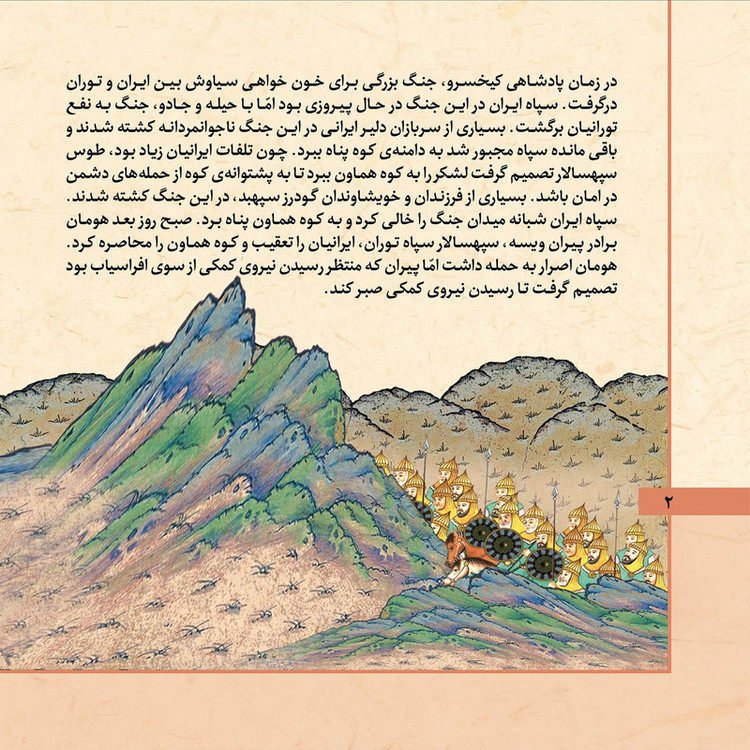 در زمان پادشاهی کیخسرو، جنگ بزرگی برای خون خواهی سیاوش بین ایران و توران
درگرفت. سپاه ایران در این جنگ در حال پیروزی بود امّا با حیله و جادو، جنگ به نفع
تورانیان برگشت. بسیاری از سربازان دلیر ایرانی در این جنگ ناجوانمردانه کشته شدند و
باقی مانده سپاه مجبور شد به دامنه‌ی کوه پناه ببرد. چون تلفات ایرانیان زیاد بود، طوس
سپهسالار تصمیم گرفت لشکر را به کوه هماون ببرد تا به پشتوانه‌ی کوه از حمله‌های دشمن
در امان باشد. بسیاری از فرزندان و خویشاوندان گودرز سپهبد، در این جنگ کشته شدند.
سپاه ایران شبانه میدان جنگ را خالی کرد و به کوه هماون پناه برد. صبح روز بعد هومان
برادر پیران ویسه، سپهسالار سپاه توران، ایرانیان را تعقیب و کوه هماون را محاصره کرد.
هومان اصرار به حمله داشت امّا پیران که منتظر رسیدن نیروی کمکی از سوی افراسیاب بود
تصمیم گرفت تا رسیدن نیروی کمکی صبر کند.
۲